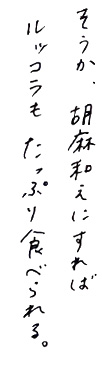 そうか、胡麻和えにすれば
ルッコラもたっぷり食べられる。